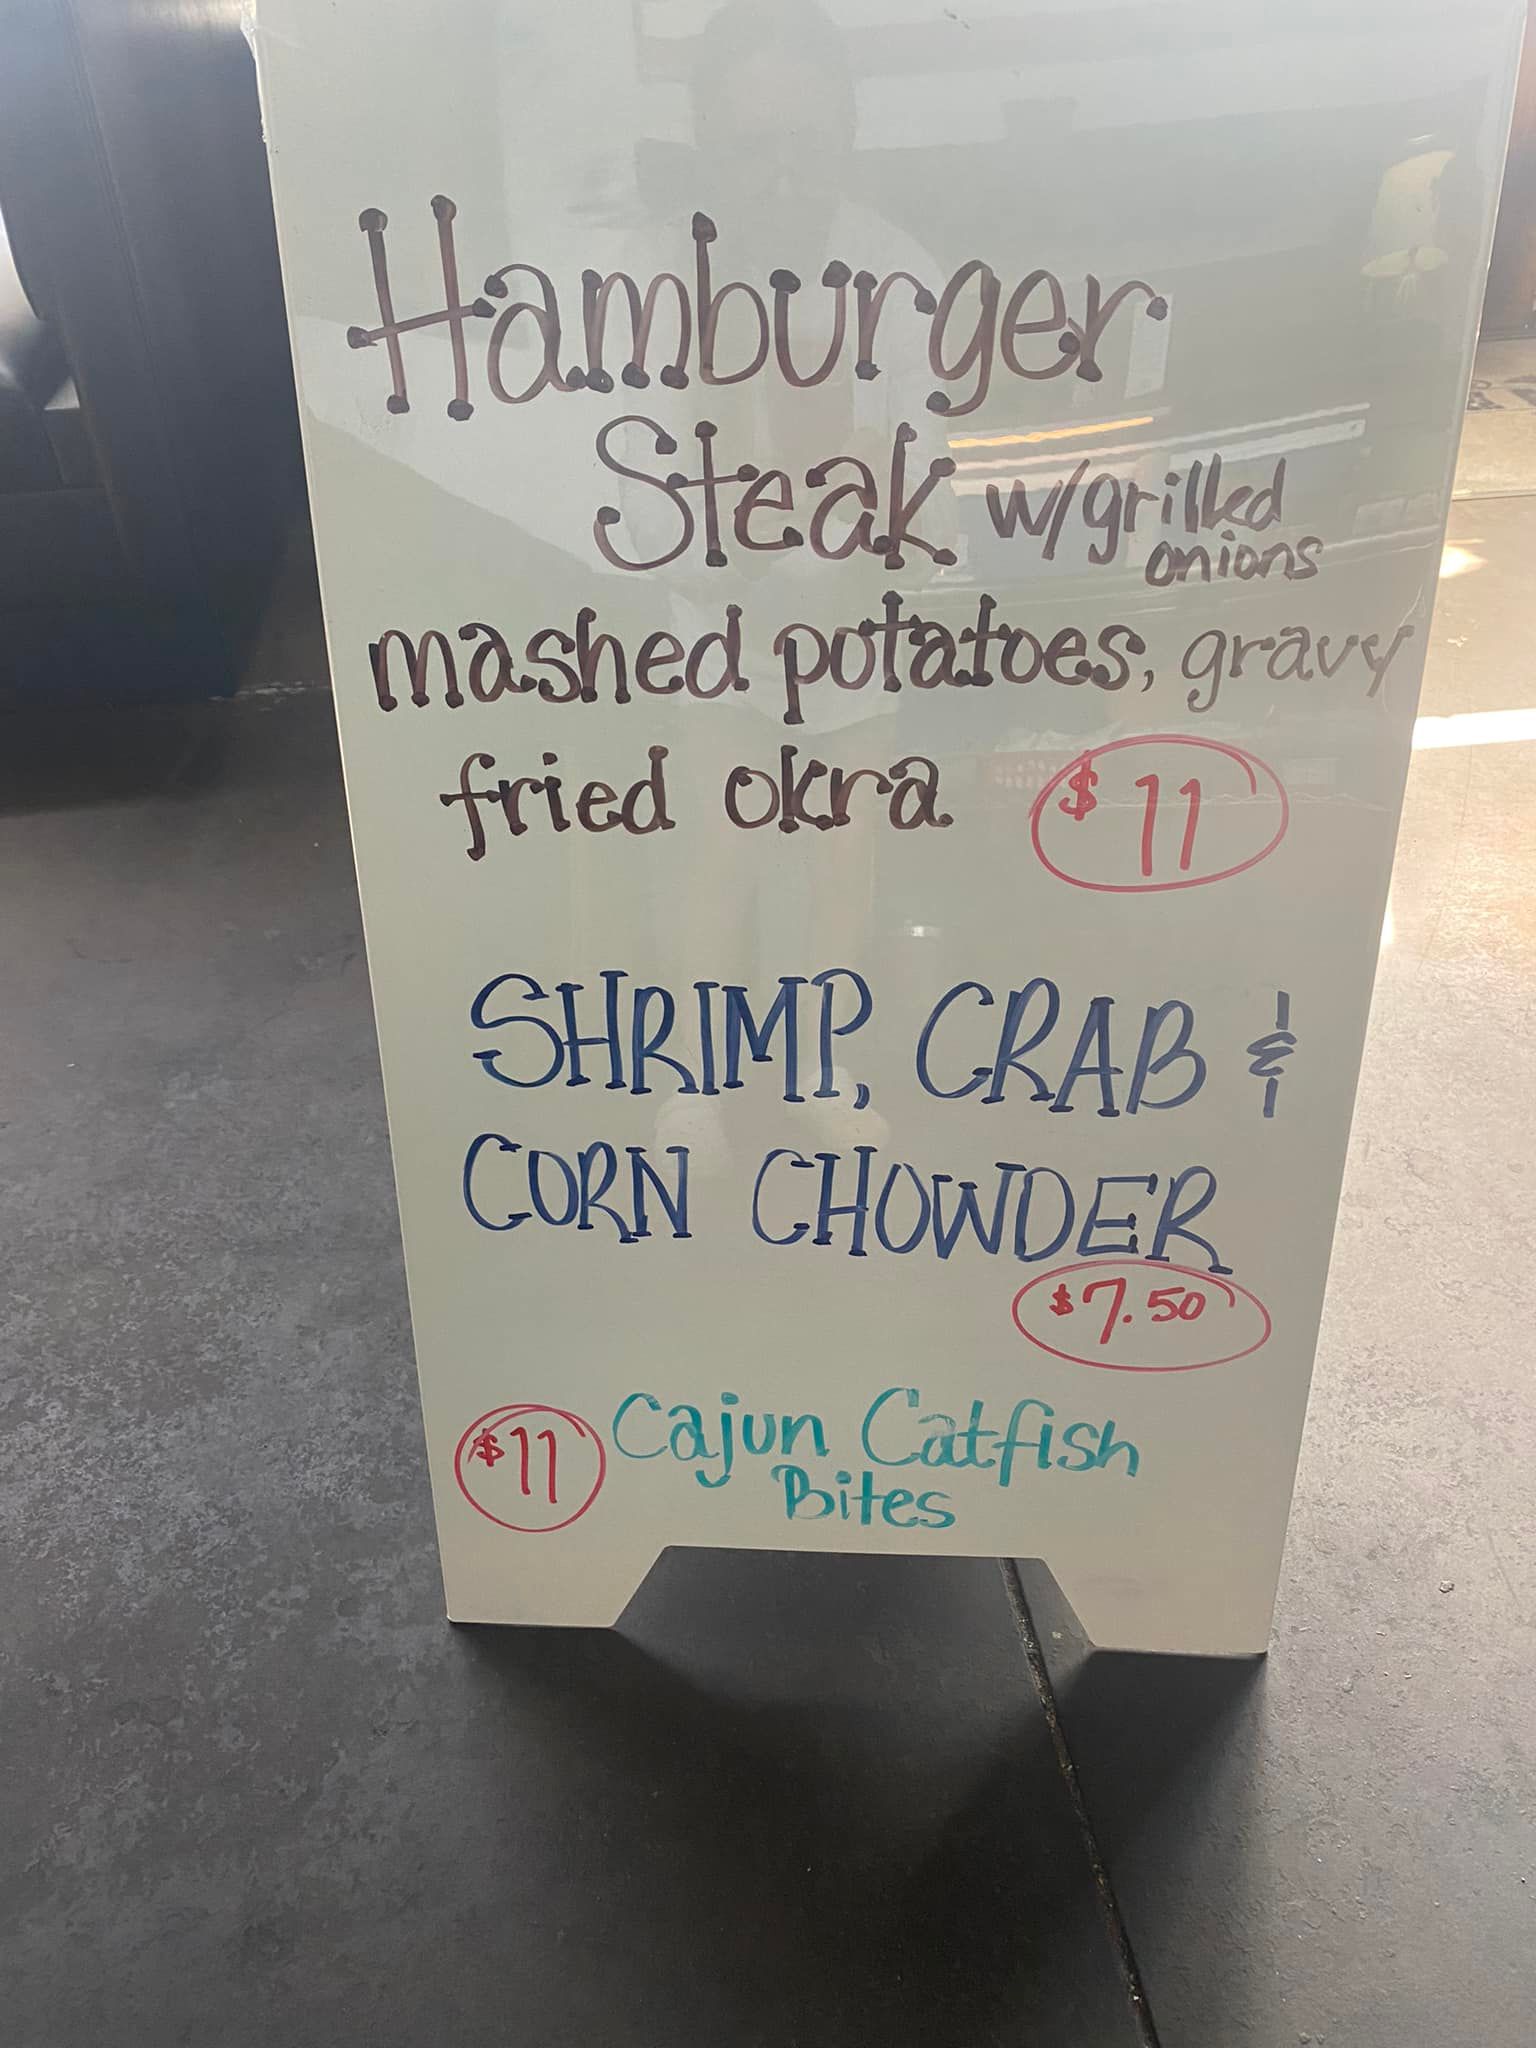 Hamburger
Steak w/grilled
onions
mashed potatoes, gravy
fried okra $11
SHRIMP, CRAB &
CORN CHOWDER
$7.50
$11 Cajun Catfish
Bites